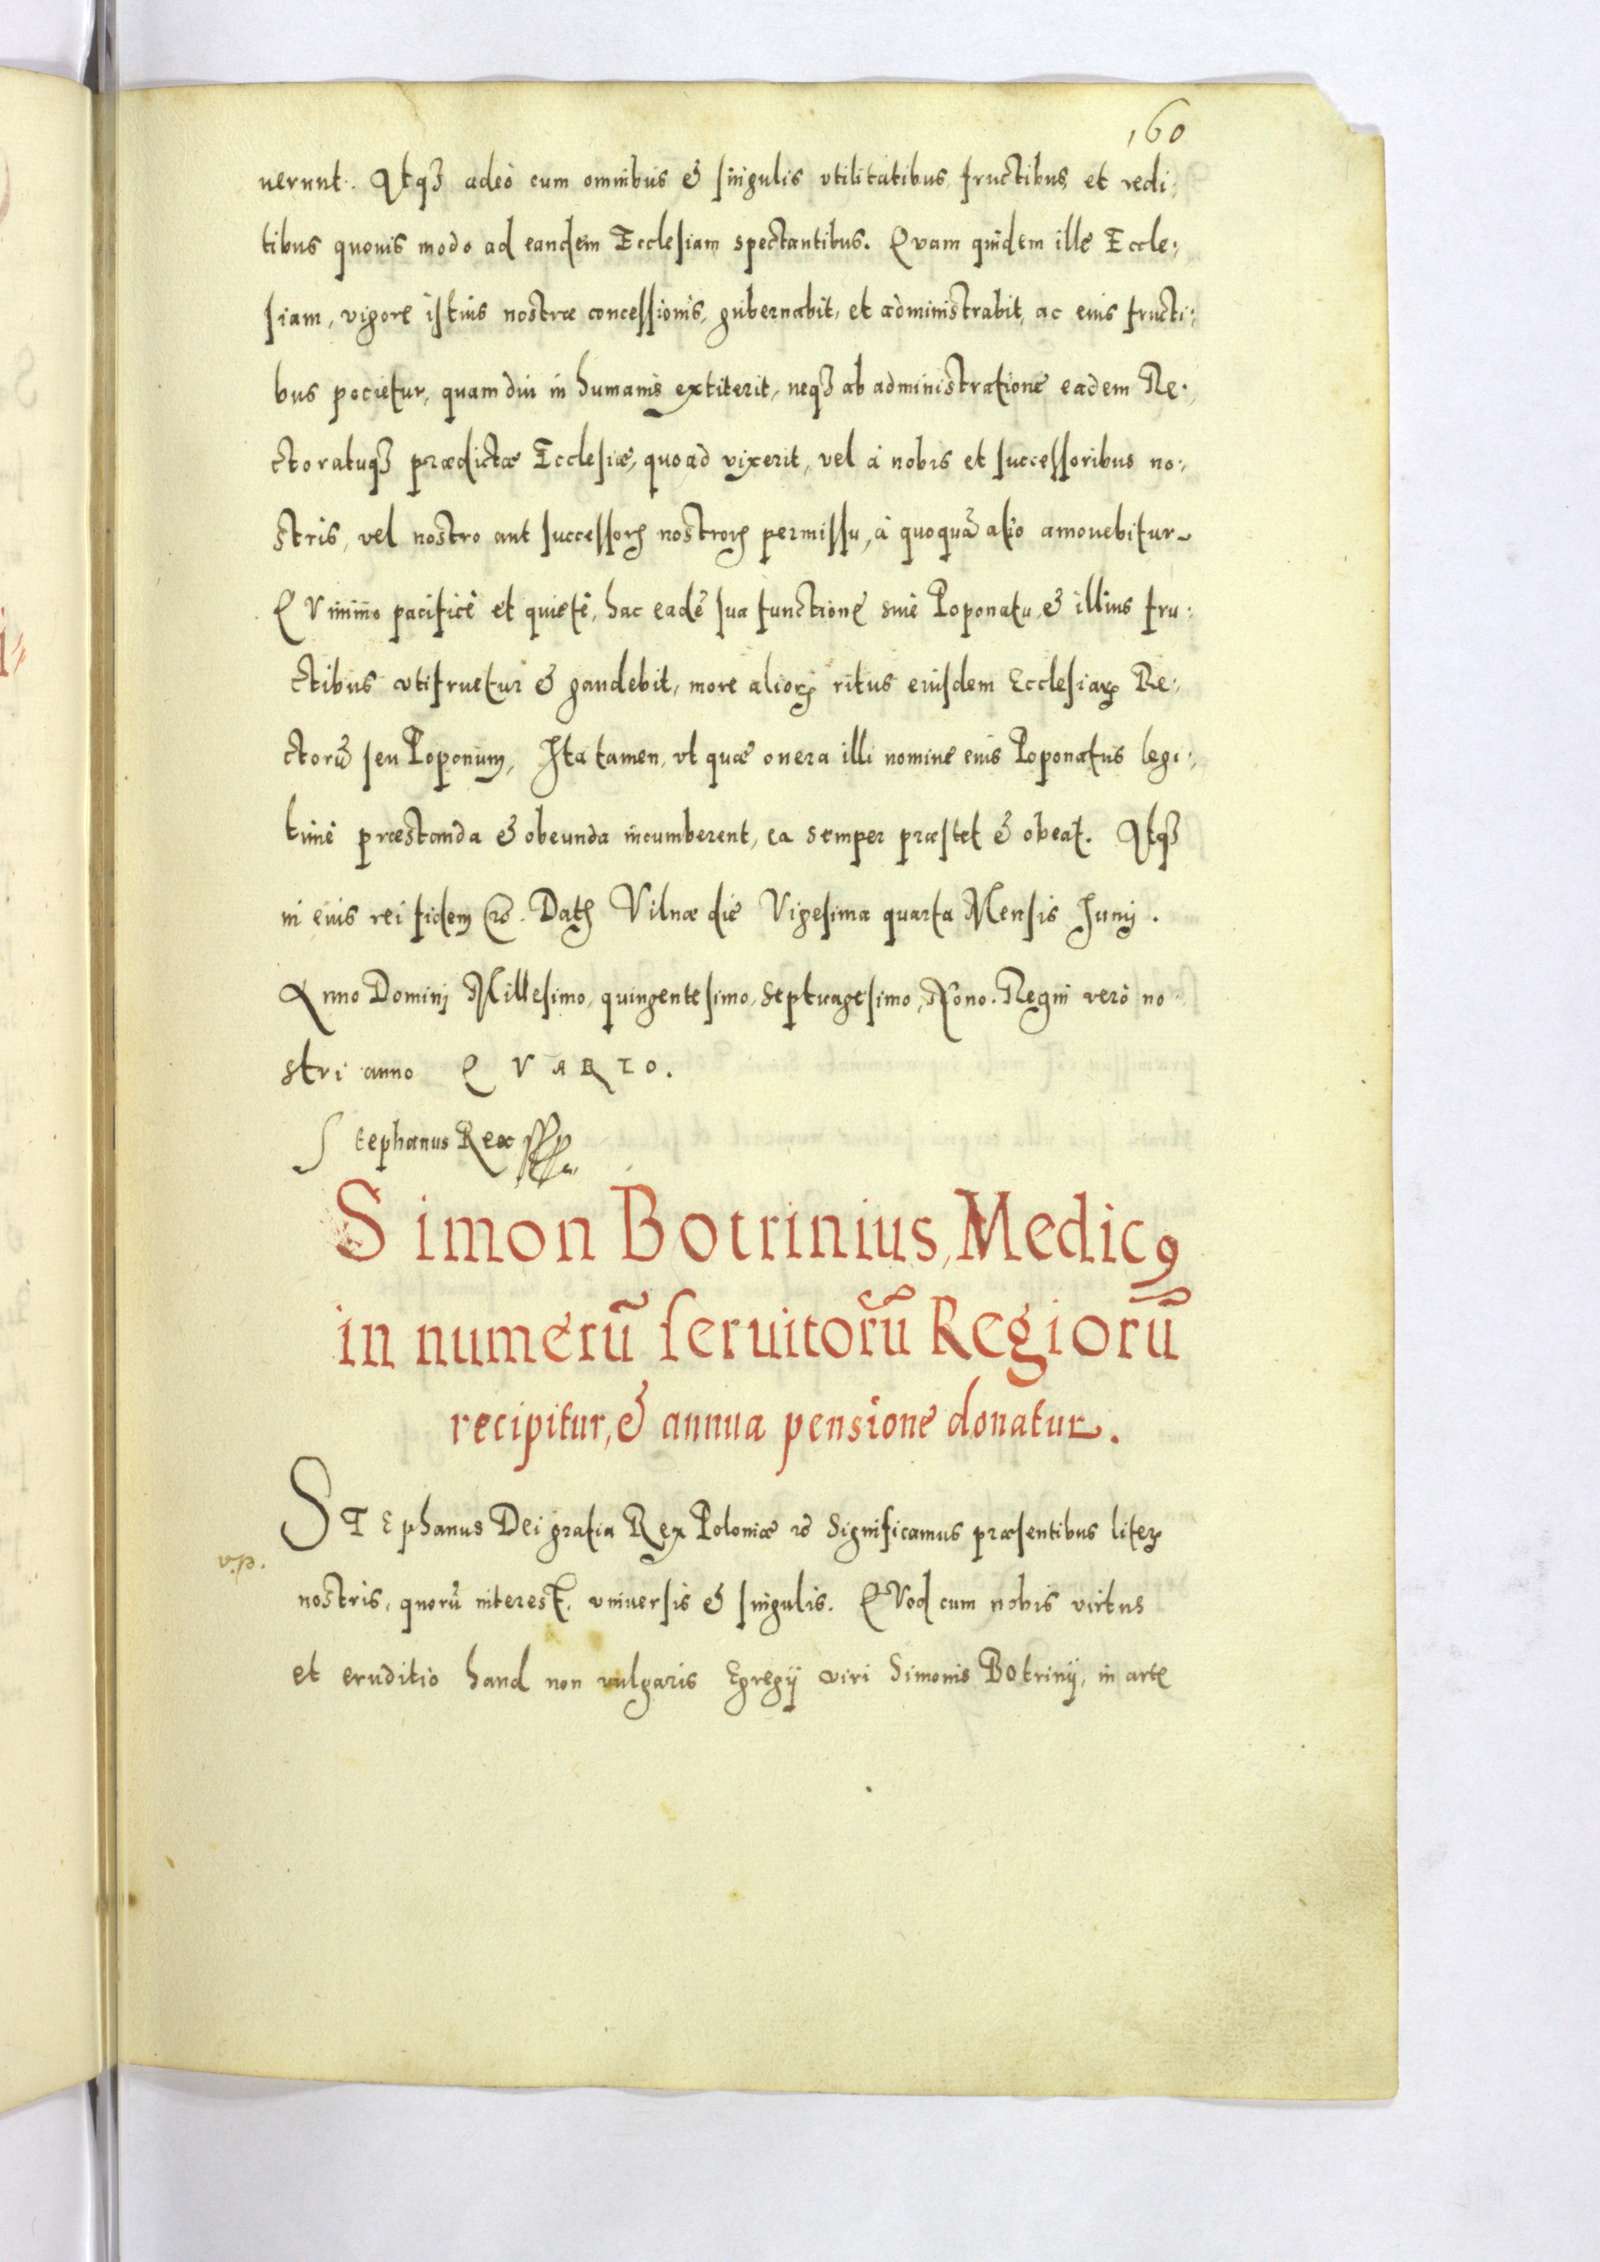 160
uerunt. Atqꝫ adeò cum omnibus & singulis vtilitatibus, fructibus, et redi⸗
tibus quouis modo ad eandem Ecclesiam spectantibus. Quam quidem ille Eccle⸗
siam, vigore istius nostræ concessionis, gubernabit, et administrabit, ac eius fructi⸗
bus pocietur, quam diu in humanis extiterit, neqꝫ ab administratione eadem Re⸗
ctoratuqꝫ prædictæ Ecclesiæ, quoad vixerit, vel à nobis et successoribus no⸗
stris, vel nostro aut successorꝝ nostrorꝝ permissu, à quoquã alio amouebitur
QVinimo pacificè et quietè, hac eadẽ sua functione siue Poponatu, & illius fru⸗
ctibus vtifruetur & gaudebit, more aliorꝝ ritus eiusdem Ecclesiarꝝ Re⸗
ctorũ seu Poponum, Ita tamen, vt quæ onera illi nomine eius Poponatus legi⸗
timè præstanda & obeunda incumberent, ea semper præstet & obeat. Atqꝫ
in eius rei fidem &c. Datꝝ Vilnæ die Vigesima quarta Mensis Junij.
Anno Domini Millesimo, quingentesimo, septuagesimo, Nono. Regni verò no⸗
stri anno QVARTO.
Stephanus Rex
Simon Botrinius, Medicꝰ
in numerũ seruitorũ Regiorũ
recipitur, & annua pensione donatur.
STEphanus Dei gratia Rex Poloniæ &c Significamus præsentibus literꝭ
v.p.
nostris, quorũ interest, vniuersis & singulis. QVod cum nobis virtus
et eruditio haud non vulgaris Egregij viri Simonis Botrinij, in arte